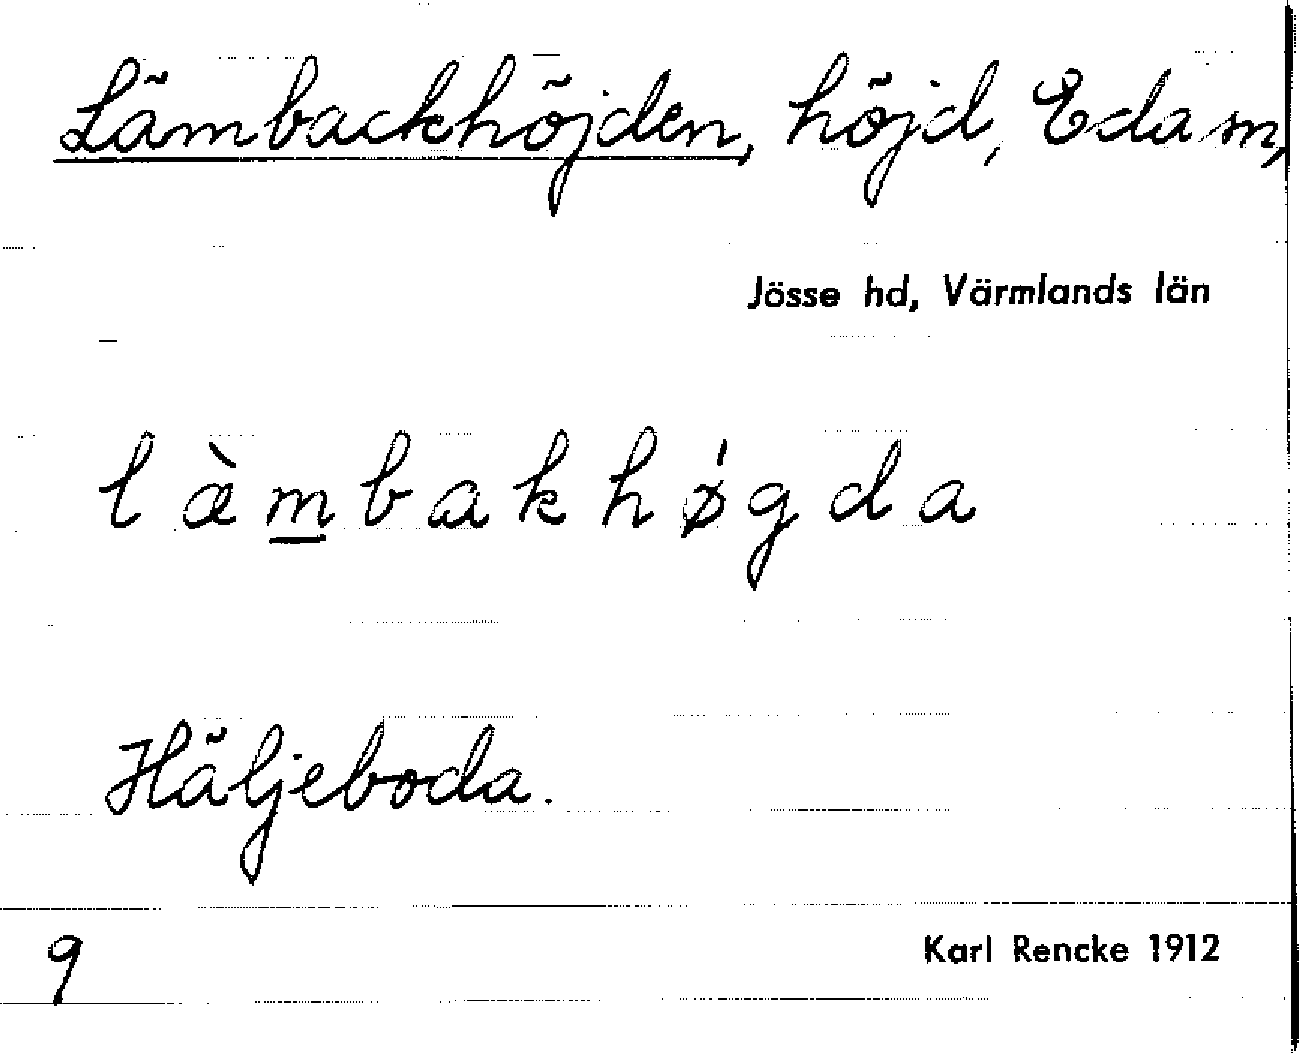 Lämbackhöjden, höjd, Eda sn,
Jösse hd, Värmlands län
l æ̀m̲bakhǿgda
Häljeboda.
9
Karl Rencke 1912